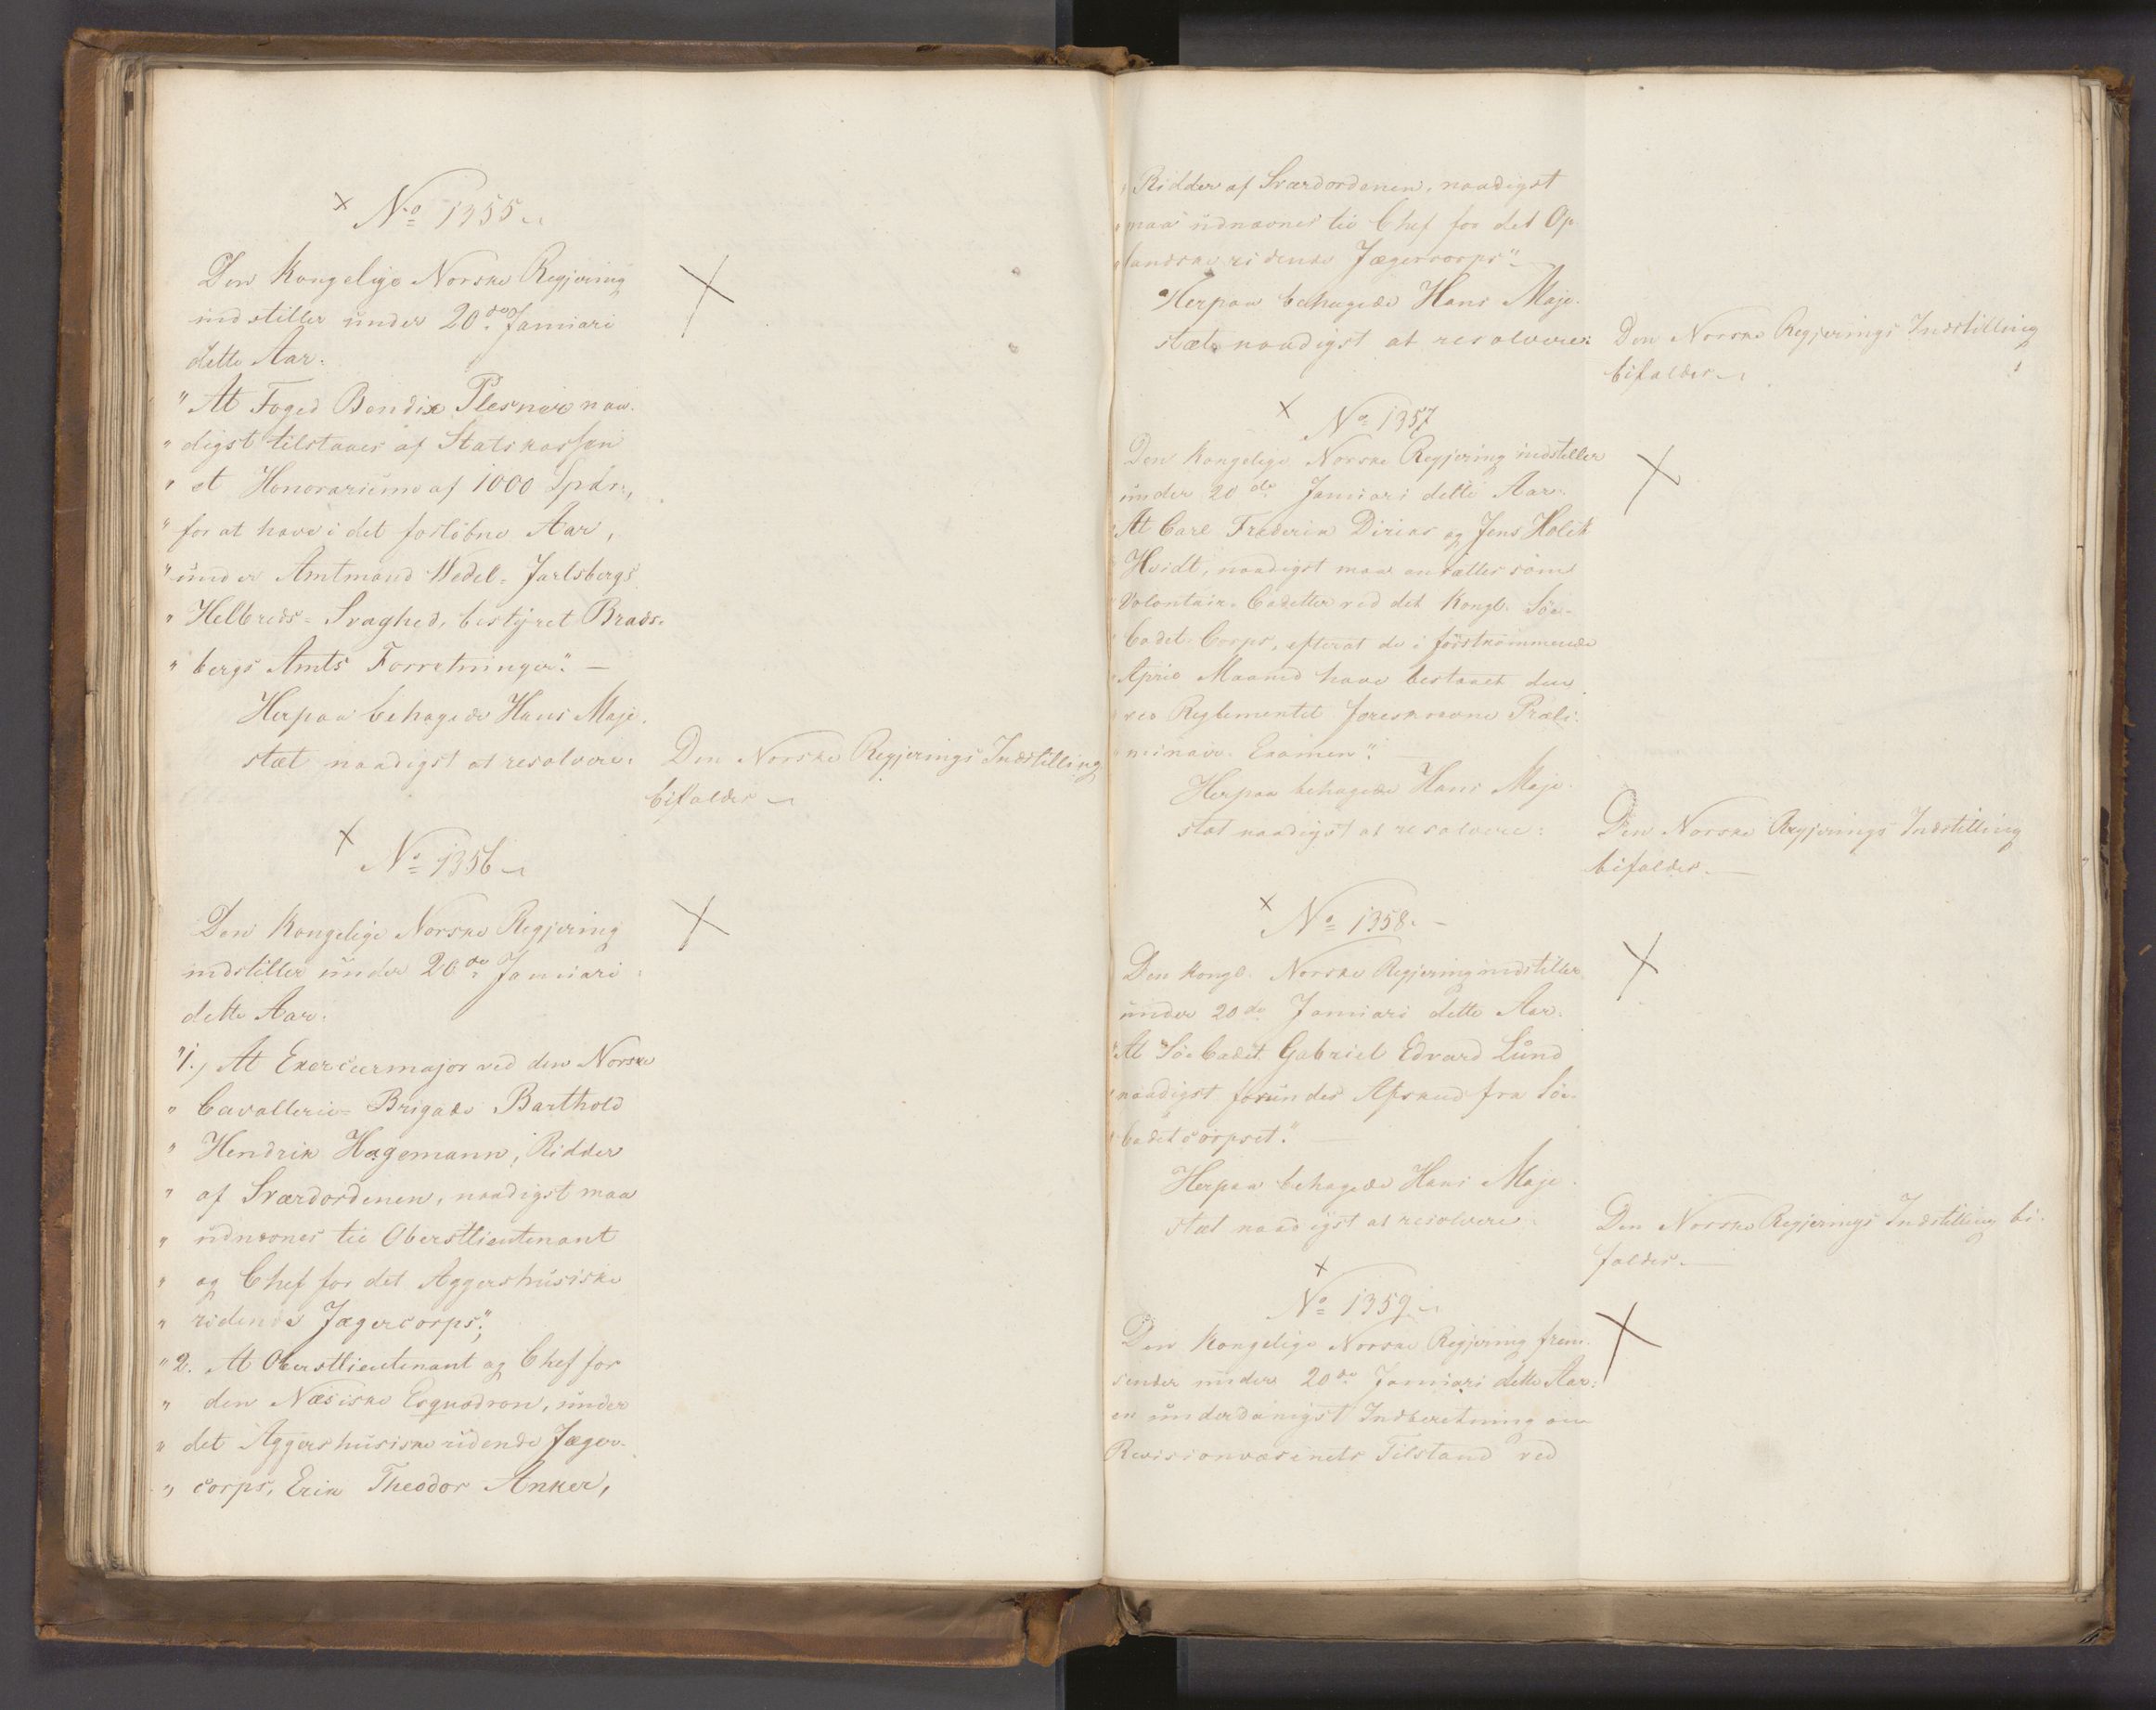 № 1355
Den Kongelige Norske Regjering
indstiller under 20de Januari
dette Aar:
"At Foged Bendix Plesner naa-
" digst tilstaaes af Statskassen
" et Honorarium af 1000 Spdr.,
" for at have i det forløbne Aar,
" under Amtmand Wedel-Jarlsbergs
" Helbreds-Svaghed, bestyret Brads-
" bergs Amts Forretninger." —
Herpaa behagede Hans Maje-
stæt naadigst at resolvere:
Den Norske Regjerings Indstilling
bifaldes
№ 1356
Den Kongelige Norske Regjering
indstiller under 20de Januari
dette Aar:
"1.) At Exerceermajor ved den Norske
" Cavallerie-Brigade Barthold
" Hendrik Hagemann, Ridder
" af Sværdordenen, naadigst maa
" udnævnes til Oberstlieutenant
" og Chef for det Aggershusiske
" ridende Jægercorps";
"2. At Oberstlieutenant og Chef for
" den Næsiske Esquadron, under
" det Aggershusiske ridende Jæger-
" corps, Erik Theodor Anker,
" Ridder af Sværdordenen, naadigst
" maa udnævnes til Chef for det Op-
" landske ridende Jægercorps"
Herpaa behagede Hans Maje-
stæt naadigst at resolvere:
Den Norske Regjerings Indstilling
bifaldes
№ 1357
Den Kongelige Norske Regjering indstiller
under 20de Januari dette Aar:
"At Carl Frederik Diriks og Jens Holck
" Hvidt, naadigst maa ansættes som
" Volontair-Cadetter ved det Kongl. Søe-
" Cadet-Corps, efterat de i førstkommende
" April Maaned have bestaaet den
" ved Reglementet foreskrevne Præli-
" minair-Examen". —
Herpaa behagede Hans Maje-
stæt naadigst at resolvere:
Den Norske Regjerings Indstilling
bifaldes. —
№ 1358. —
Den Kongl. Norske Regjering indstiller
under 20de Januari dette Aar:
"At Søe Cadet Gabriel Edvard Lund
" naadigst forundes Afskeed fra Søe-
" Cadetcorpset." —
Herpaa behagede Hans Maje-
stæt naadigst at resolvere:
Den Norske Regjerings Indstilling bi-
faldes. —
№ 1359
Den Kongelige Norske Regjering frem-
sender under 20de Januari dette Aar:
en underdanigst Indberetning om
Revisionvæsenets Tilstand ved